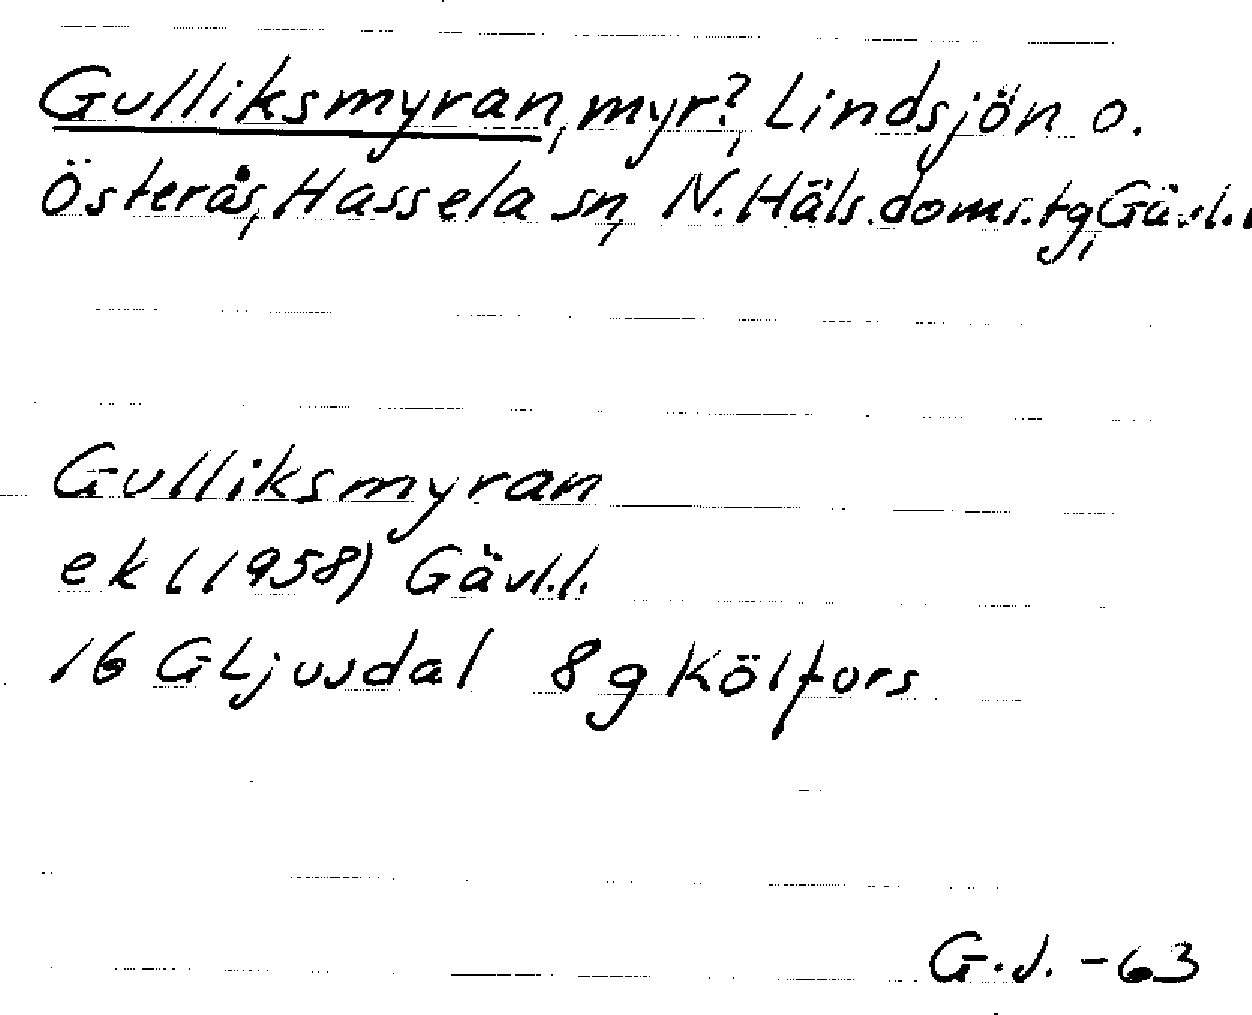 Gulliksmyran, myr?, Lindsjön o.
Österås, Hassela sn, N. Häls. doms. tg, Gävl. l
Gulliksmyran
ek (1958) Gävl. l.
16 G Ljusdal 8 g Kölfors
G. J. -63